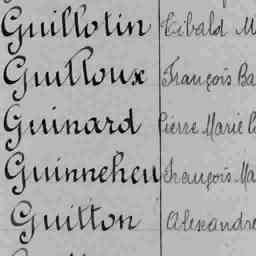 Guillotin Tibald M
Guilloux François Ba
Guinard Pierre Marie
Guinneheu François Ma
Guitton Alexandre